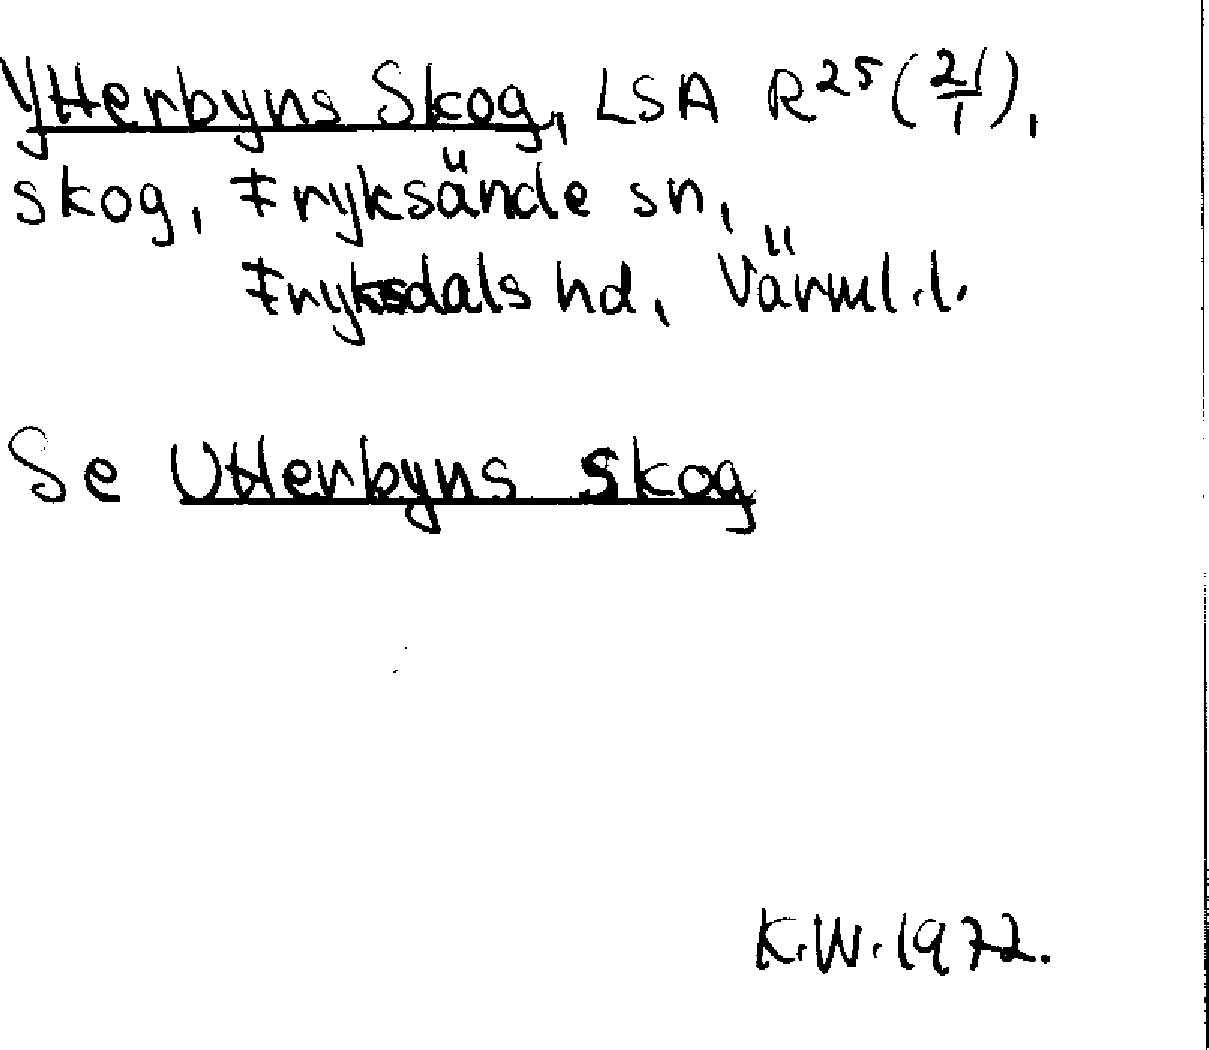 Ytterbyns Skog, LSA R25 (21/1),
skog, Fryksände sn,
Fryksdals hd, Värml.l.
Se Utterbyns skog
K.W. 1972.